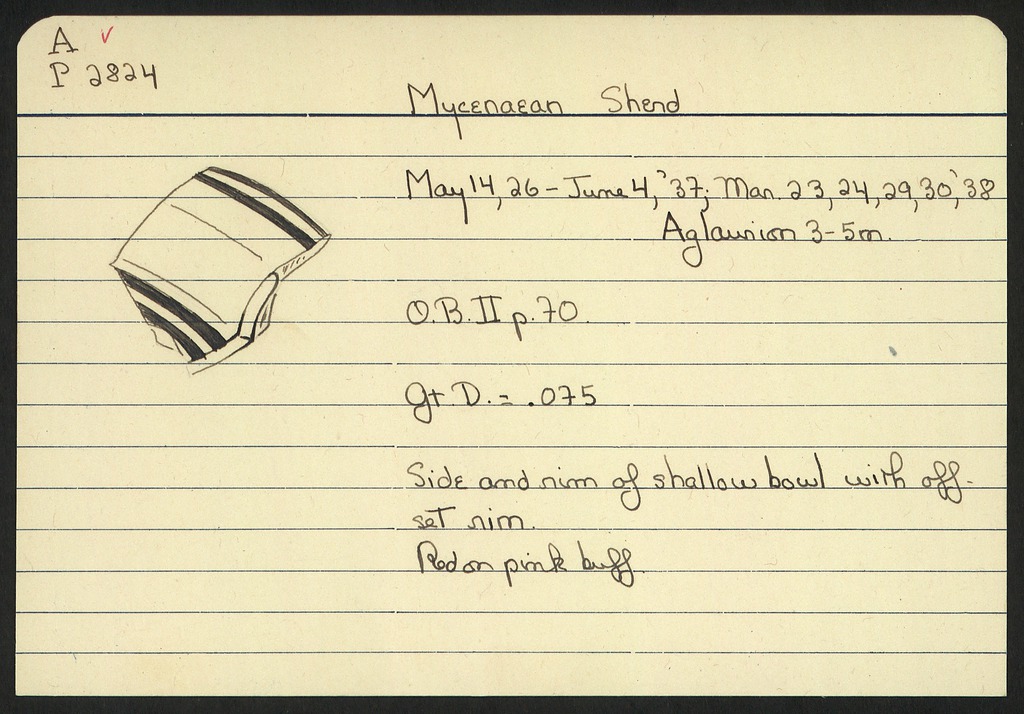 A ✓
P 2824
Mycenaean Sherd
May 14, 26 - June 4, '37; Mar. 23, 24, 29, 30, '38
Aglaurion 3-5m.
O.B. II p. 70.
Gt. D. = .075
Side and rim of shallow bowl with off-
set rim.
Red on pink buff.